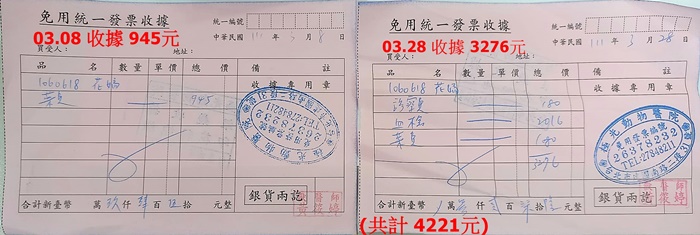 免用統一發票收據
統一編號
03.08 收據 945元
中華民國 111 年 3 月 8 日
買受人：
地址：
品名 數量 單價 總價 備註
1060618 花媽 收據專用章
945
免用發票編號
26378232
TEL:27848211
銀貨兩訖
合計新臺幣 萬 玖 仟 肆 百 伍 元整
免用統一發票收據
統一編號
03.28 收據 3276元
中華民國 111 年 3 月 28 日
買受人：
地址：
品名 數量 單價 總價 備註
1060618 花媽 收據專用章
180
血檢 2916
180
3276
極光動物醫院
免用發票編號
26378232
TEL:27848211
銀貨兩訖
合計新臺幣 萬 仟 貳 百 柒拾陸 元整
(共計 4221元)